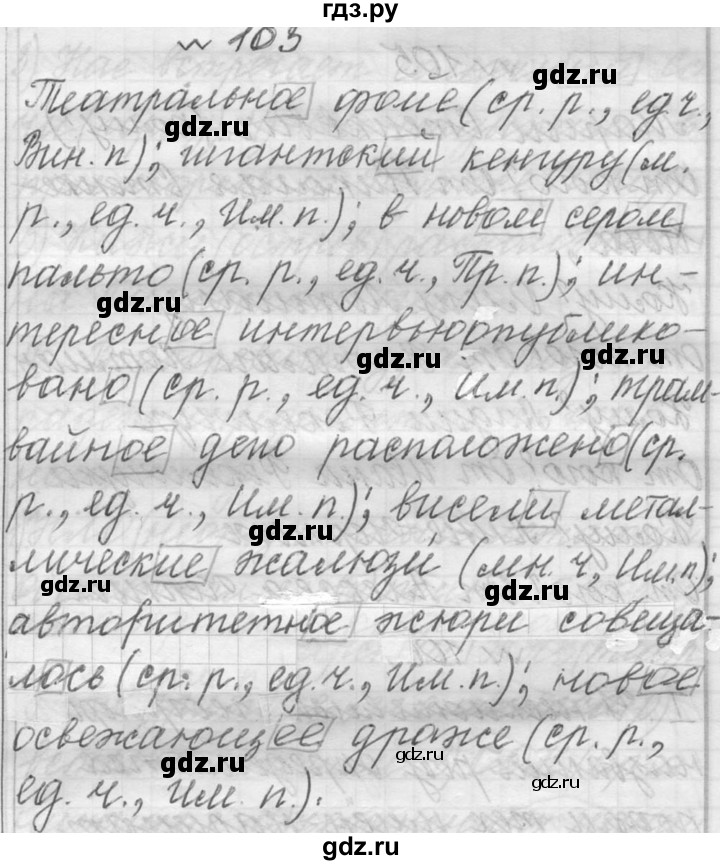 гдз.ру
№ 103
Театральное фойе (ср. р., ед ч.,
gdz.ru
Вин. п); гигантский кенгуру (м.
gdz.ru
р., ед. ч., Им. п.); в новом сером
пальто (ср. р., ед. ч., Пр. п.); ин-
gdz.ru
тересное интервью опублико-
gdz.ru
gdz.ru
вано (ср. р., ед. ч., Им. п.); трам-
вайное депо расположено (ср.
р., ед. ч., Им. п.); висели метал-
gdz.ru
лические жалюзи (мн. ч, Им. п);
gdz.ru
gdz.ru
авторитетное жюри совеща-
лось (ср. р., ед. ч., Им. п.); новое
освежающее драже (ср. р.,
gdz.ru
gdz.ru
gdz.ru
ед. ч., Им. п.).
gdz.ru